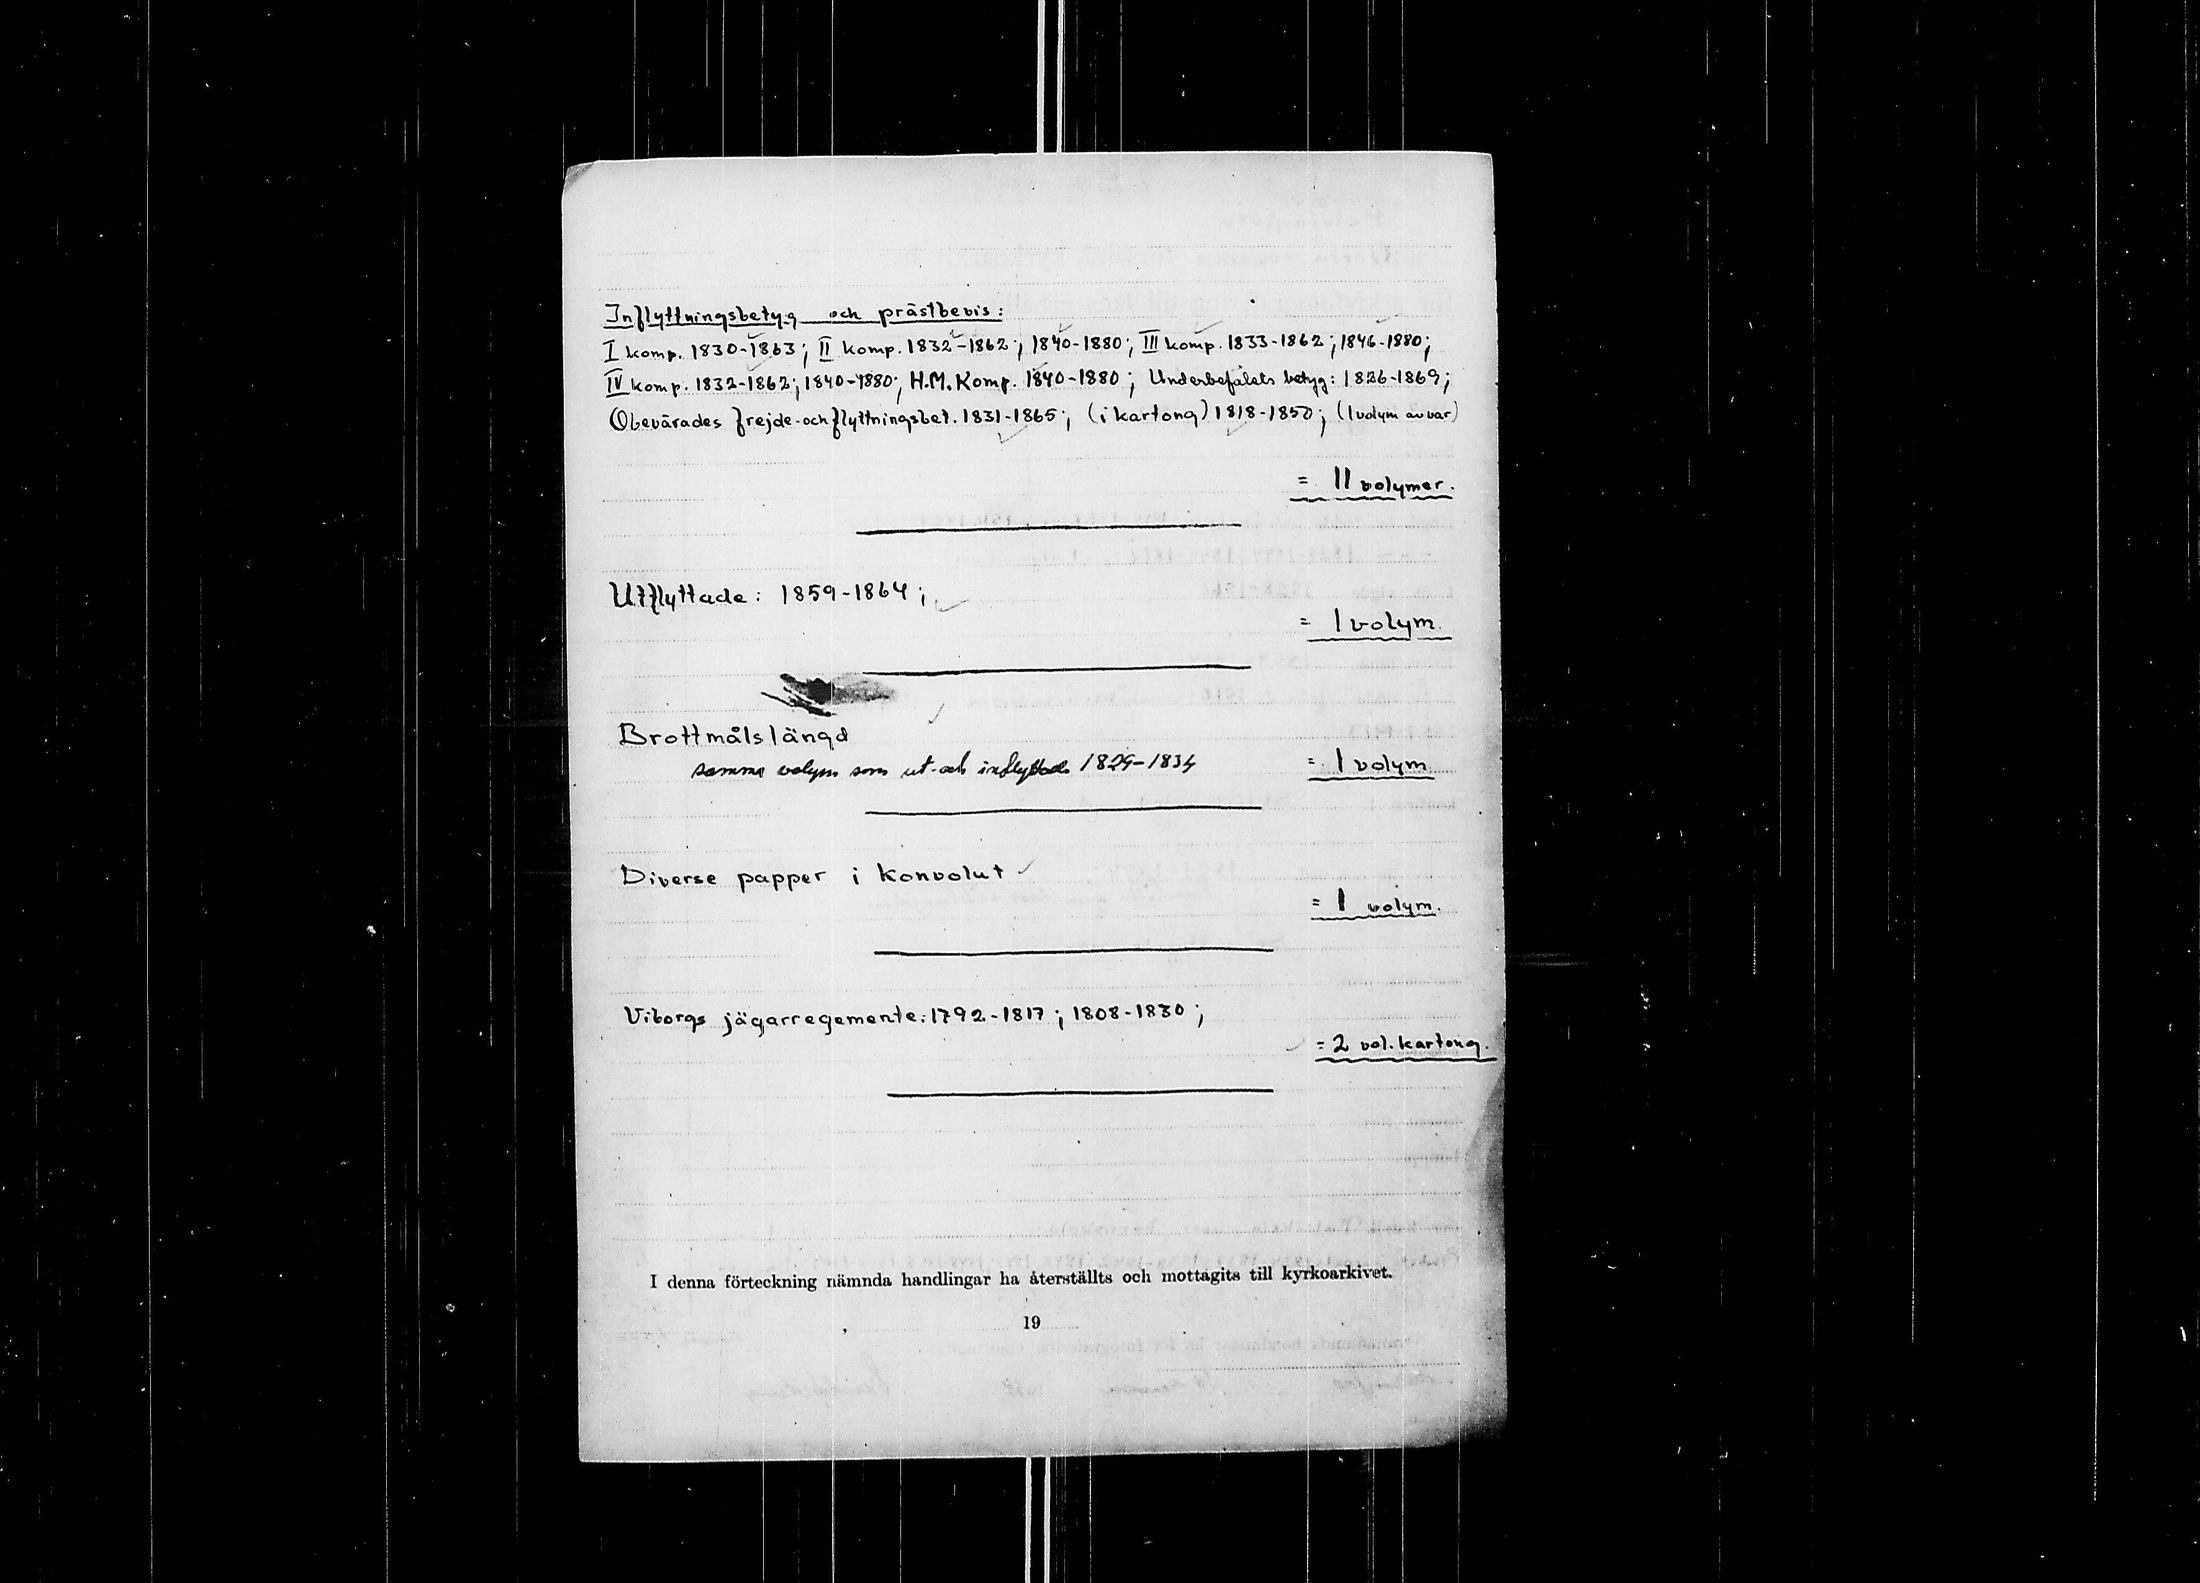 Inflyttningsbetyg och prästbevis:
I komp. 1830-1863; II komp. 1832-1862; 1840-1880; III komp. 1833-1862; 1846-1880;
IV komp. 1832-1862; 1840-1880; H.M. Komp. 1840-1880; Underbefälets betyg: 1826-1869;
Obevärades frejde- och flyttningsbet. 1831-1865; (i kartong) 1818-1850; (1 volym av var)
= 11 volymer.
Utflyttade: 1859-1864;
= 1 volym
Brottmålslängd
samma volym som ut- och inflyttade 1829-1834 = 1 volym
Diverse papper i konvolut
= 1 volym.
Viborgs jägarregemente: 1792-1817; 1808-1830;
= 2 vol. kartong.
I denna förteckning nämnda handlingar ha återställts och mottagits till kyrkoarkivet.
19